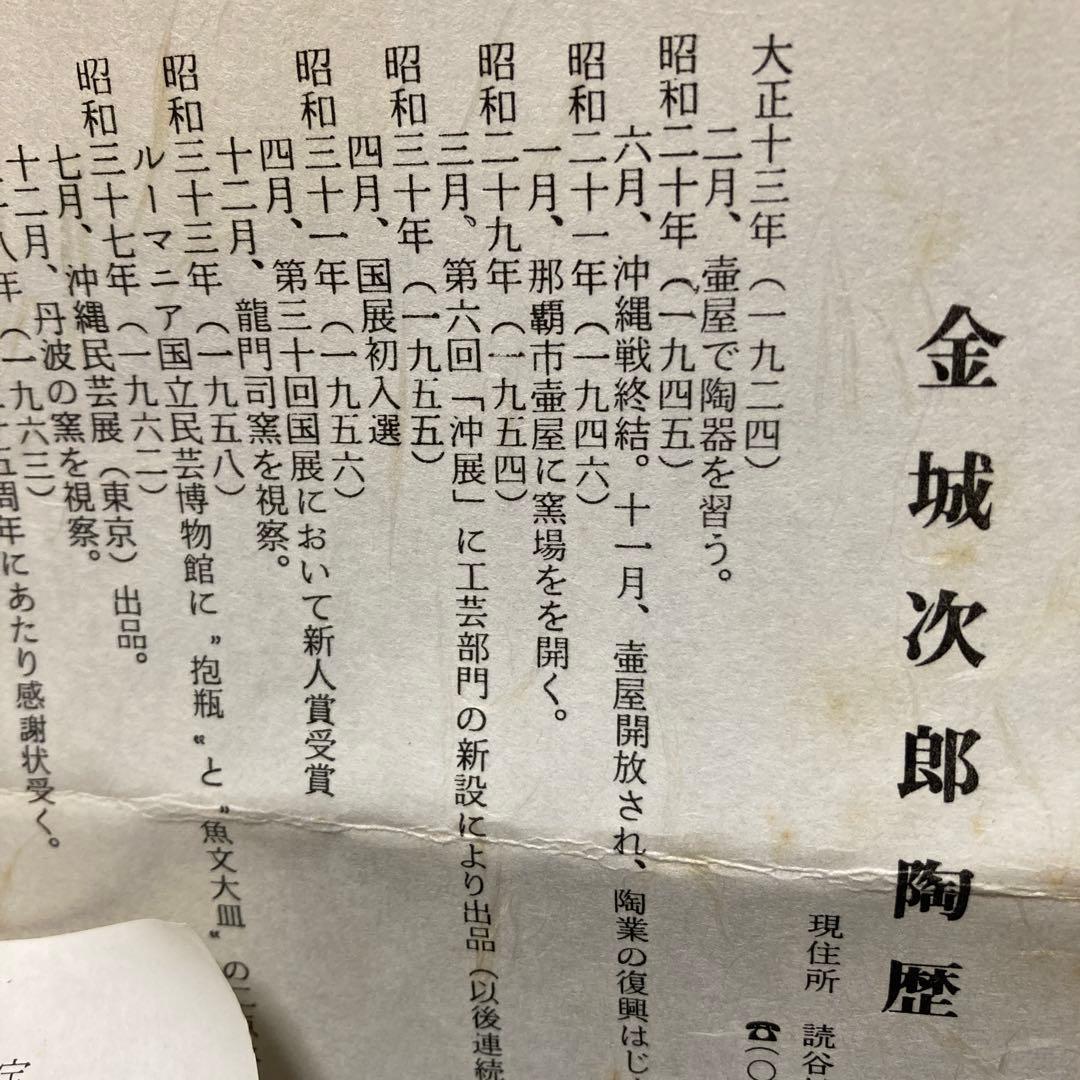 金城次郎陶歴
現住所 読谷
☎(〇
大正十三年(一九二四)
二月、壷屋で陶器を習う。
昭和二十年(一九四五)
六月、沖縄戦終結。十一月、壷屋開放され、陶業の復興はじ
昭和二十一年(一九四六)
一月、那覇市壷屋に窯場をを開く。
昭和二十九年(一九五四)
三月。第六回「沖展」に工芸部門の新設により出品(以後連続
昭和三十年(一九五五)
四月、国展初入選
昭和三十一年(一九五六)
四月、第三十回国展において新人賞受賞
十二月、龍門司窯を視察。
昭和三十三年(一九五八)
ルーマニア国立民芸博物館に〝抱瓶〟と〝魚文大皿〟の二
昭和三十七年(一九六二)
七月、沖縄民芸展(東京)出品。
十二月、丹波の窯を視察。
八年(一九六三)
五周年にあたり感謝状受く。